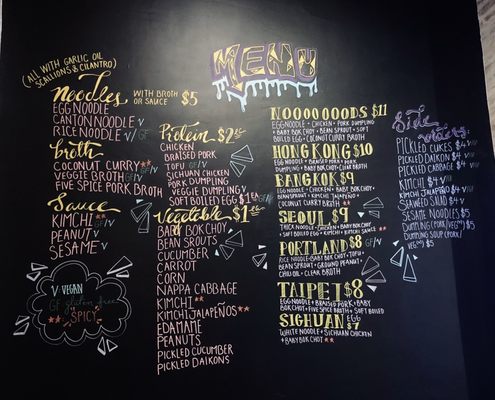 (ALL WITH GARLIC OIL
SCALLIONS & CILANTRO)
Noodles WITH BROTH
OR SAUCE $5
EGG NOODLE
CANTON NOODLE V
RICE NOODLE V/GF
broth
COCONUT CURRY**
VEGGIE BROTH GF/V
FIVE SPICE PORK BROTH
Sauce
KIMCHI** GF/V
PEANUT V
SESAME V
V VEGAN
GF gluten free
** SPICY
Protein $2ea
CHICKEN
BRAISED PORK
TOFU GF/V
SICHUAN CHICKEN
PORK DUMPLING
VEGGIE DUMPLING V
SOFT BOILED EGG $1EA
Vegetable $1ea
BABY BOK CHOY
BEAN SPROUTS
CUCUMBER
CARROT
CORN
NAPPA CABBAGE
KIMCHI**
KIMCHI JALAPEÑOS**
EDAMAME
PEANUTS
PICKLED CUCUMBER
PICKLED DAIKONS
MENU
NOOOOOODS $11
EGG NOODLE + CHICKEN + PORK DUMPLING
+ BABY BOK CHOY + BEAN SPROUT + SOFT
BOILED EGG + COCONUT CURRY BROTH
HONG KONG $10
EGG NOODLE + BRAISED PORK + PORK
DUMPLING + BABY BOK CHOY + CLEAR BROTH
BANGKOK $9
EGG NOODLE + CHICKEN + BABY BOK CHOY +
BEANSPROUTS + KIMCHI JALAPENO +
COCONUT CURRY BROTH **
SEOUL $9
THICK NOODLE + CHICKEN + CORN + BABY BOK CHOY
+ SOFT BOILED EGG + KIMCHI + KIMCHI SAUCE **
PORTLAND $8 GF/V
RICE NOODLE + BABY BOK CHOY + TOFU +
BEAN SPROUT + GROUND PEANUT +
CHILI OIL + CLEAR BROTH
TAIPEI $8
EGG NOODLE + BRAISED PORK + BABY
BOK CHOY + FIVE SPICE BROTH + SOFT BOILED
EGG
SICHUAN $7
WHITE NOODLE + SICHUAN CHICKEN
+ BABY BOK CHOY **
Side
PICKLED CUKES $4
PICKLED DAIKON $4
PICKLED CABBAGE $4
KIMCHI $4
KIMCHI JALAPEÑO $4
SEAWEED SALAD $4
SESAME NOODLES $5
DUMPLING (PORK/VEG) $5
DUMPLING SOUP (PORK/
VEG) $5